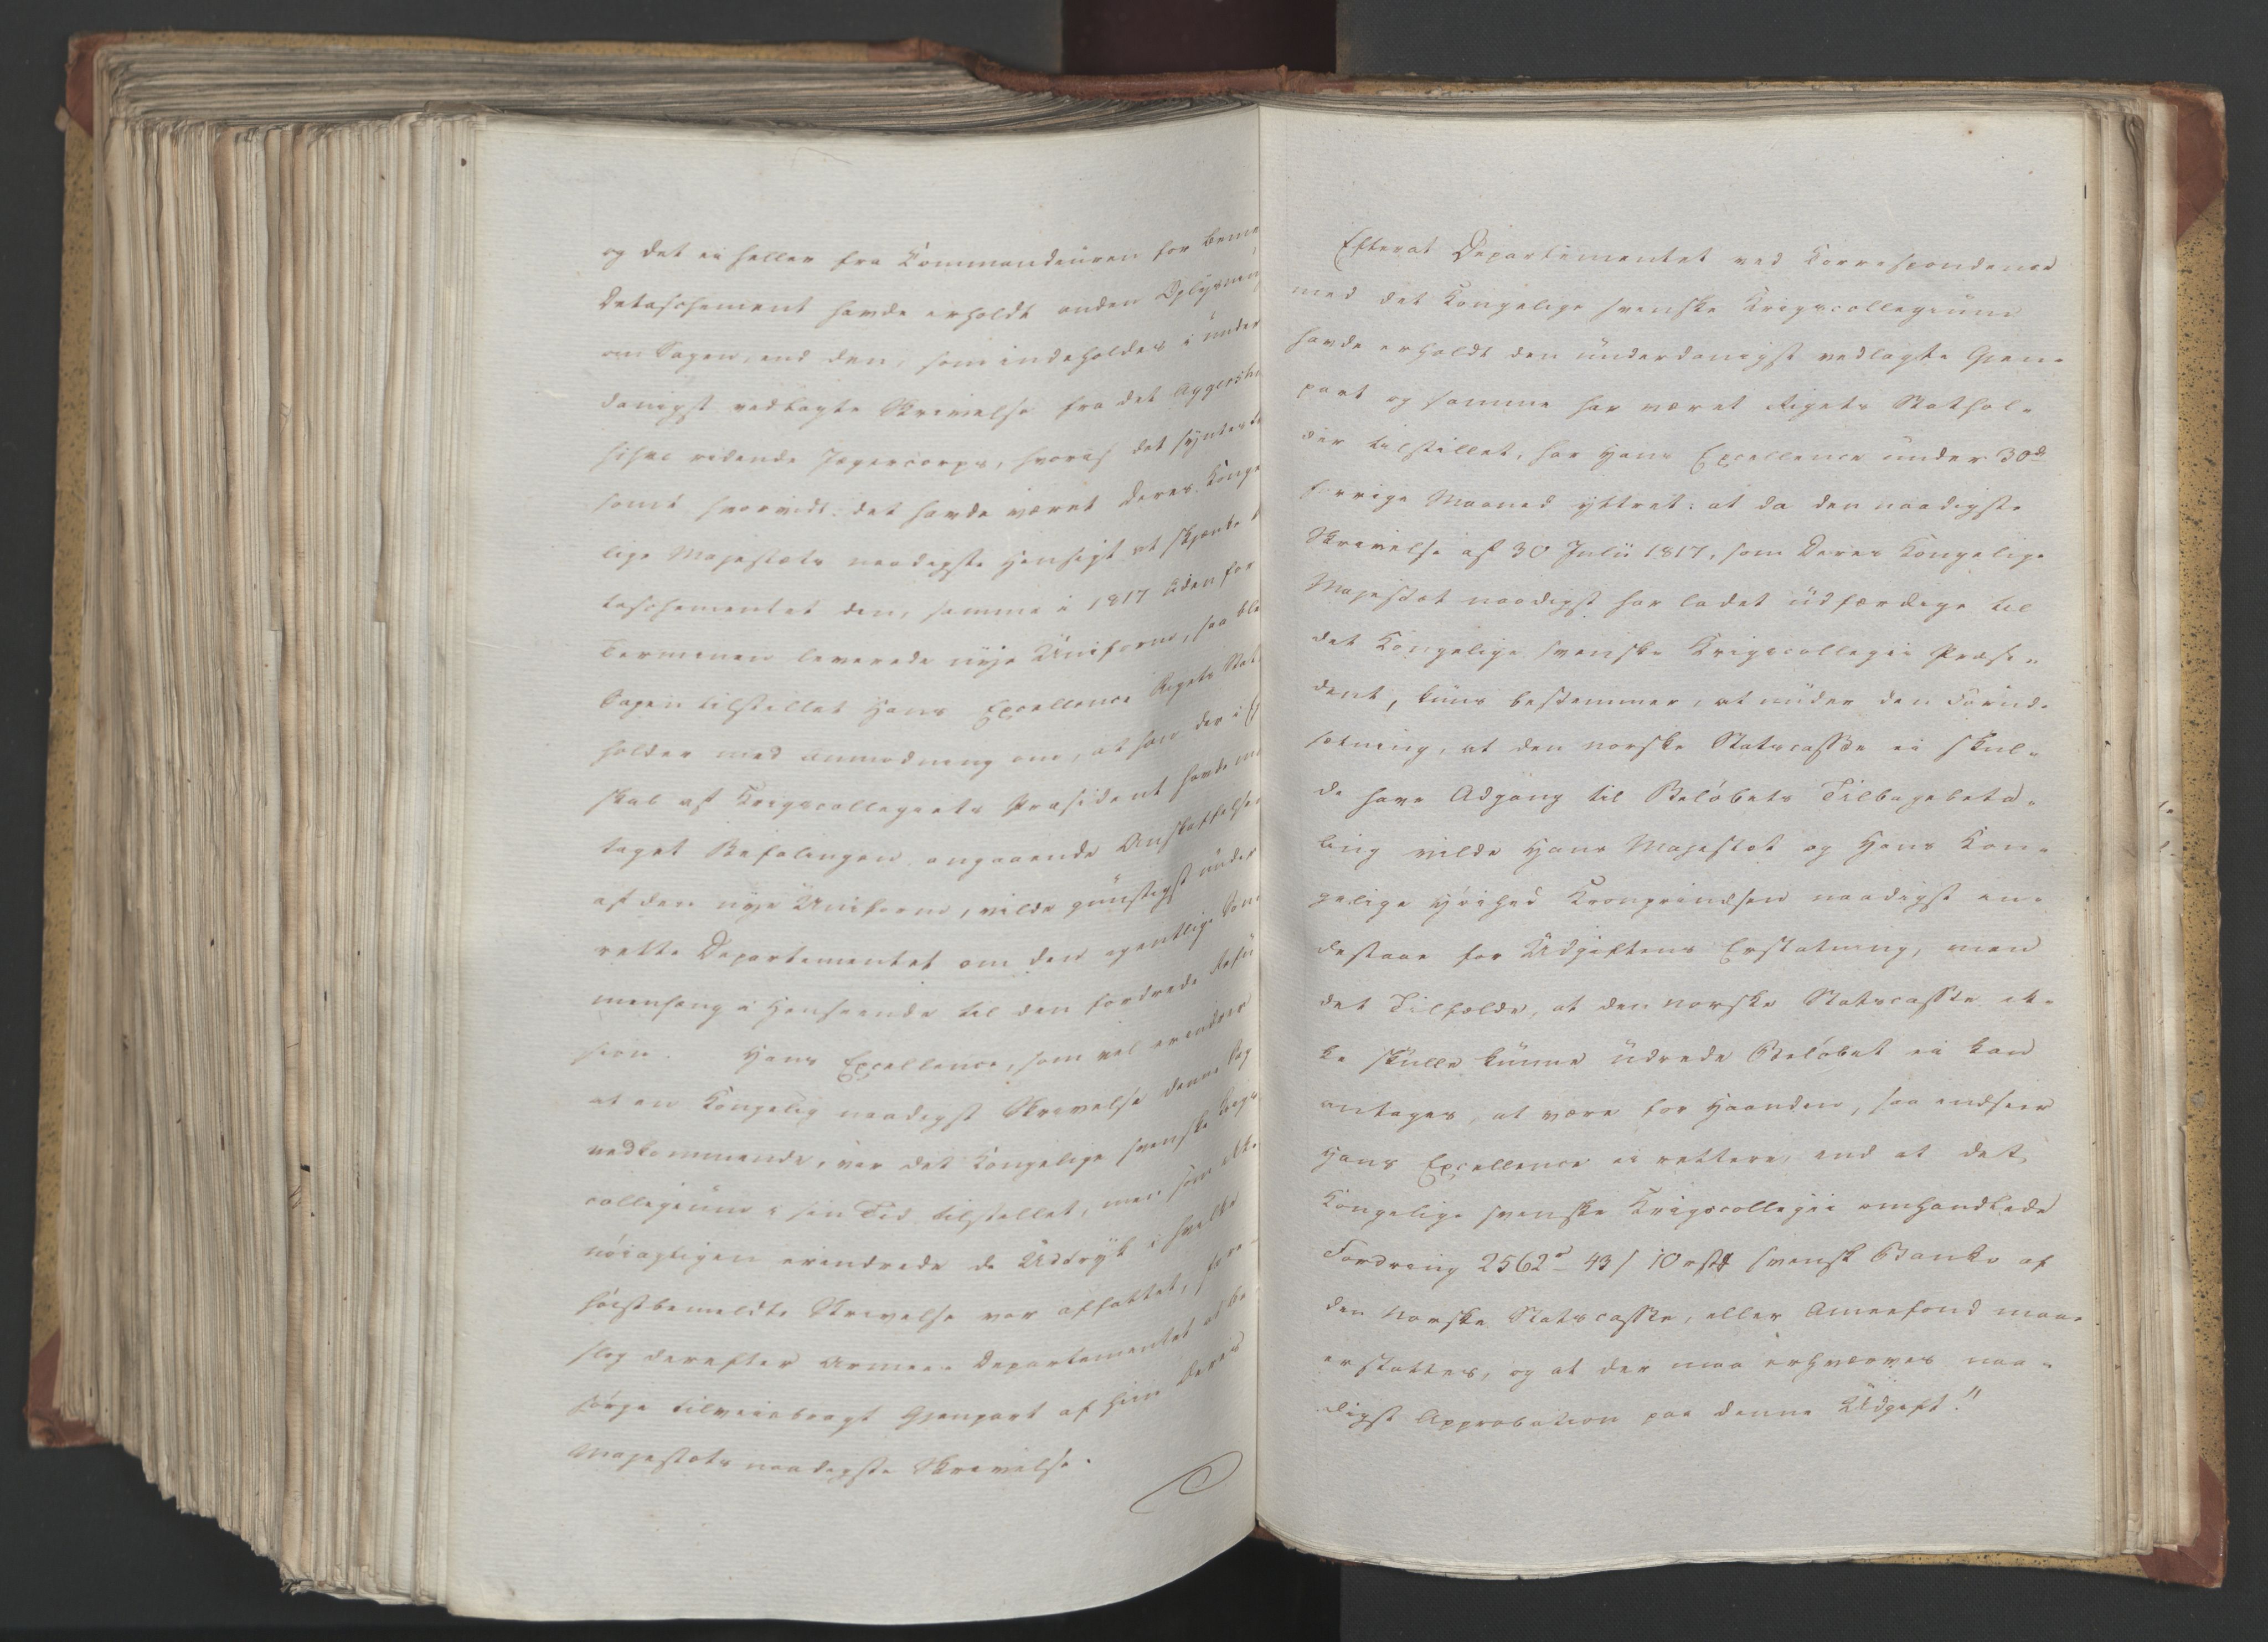 og det ei heller fra Kommandeuren for beme
Detaschement havde erholdt anden Oplysning
om Sagen, end den, som indeholdes i under
danigst vedlagte Skrivelse fra det Aggersh
siske ridende Jægercorps, hvoraf det syntes
somt hvorvidt det havde været Deres Konge
lige Majestæts naadigste Hensigt at skjænke
taschementet den, samme i 1817 uden for
Terminen leverede nye Uniform, saa blev
Sagen tilstillet Hans Excellence Rigets Stat
holder med Anmodning om, at han der i E
skab af Krigscollegiets Præsident havde mo
taget Befalingen angaaende Anskaffelsen
af den nye Uniform, vilde gunstigst under
rette Departementet om den egentlige Sam
menhæng i Henseende til den fordrede Refu
sion. Hans Excellence, som vel erindrer
at en Kongelig naadigst Skrivelse denne Sag
vedkommende, var det Kongelige svenske Krigs
collegium i sin Tid tilstillet, men som ikke
nöiagtigen erindrede de Udtryk i hvilke
höistbemeldte Skrivelse var affattet, fore
slog derefter Armee-Departementet at be
sörge tilveiebragt Gjenpart af hiin Deres
Majestæts naadigste Skrivelse.
Efterat Departementet ved Korrespondence
med det Kongelige svenske Krigscollegium
havde erholdt den underdanigst vedlagte Gjen-
part og samme har været Rigets Stathol-
der tilstillet, har Hans Excellence under 30de
forrige Maaned yttret: at da den naadigste
Skrivelse af 30 Julii 1817, som Deres Kongelige
Majestæt naadigst har ladet udfærdige til
det Kongelige svenske Krigscollegii Præsi-
dent, kuns bestemmer, at under den Forud-
sætning, at den norske Statscasse ei skul-
de have Adgang til Belöbets Tilbagebeta-
ling vilde Hans Majestæt og Hans Kon-
gelige Höihed Kronprindsen naadigst in-
destaae for Udgiftens Erstatning, men
det Tilfælde, at den norske Statscasse ik-
ke skulle kunne udrede Belöbet ei kan
antages, at være for Haanden, saa indseer
Hans Excellence ei rettere, end at det
Kongelige svenske Krigscollegii omhandlede
Fordring 2562 d 43 s 10 rst svensk Banko af
den norske Statscasse, eller Armeefond maae
erstattes, og at der maa erhverves naa-
digst Approbation paa denne Udgift."